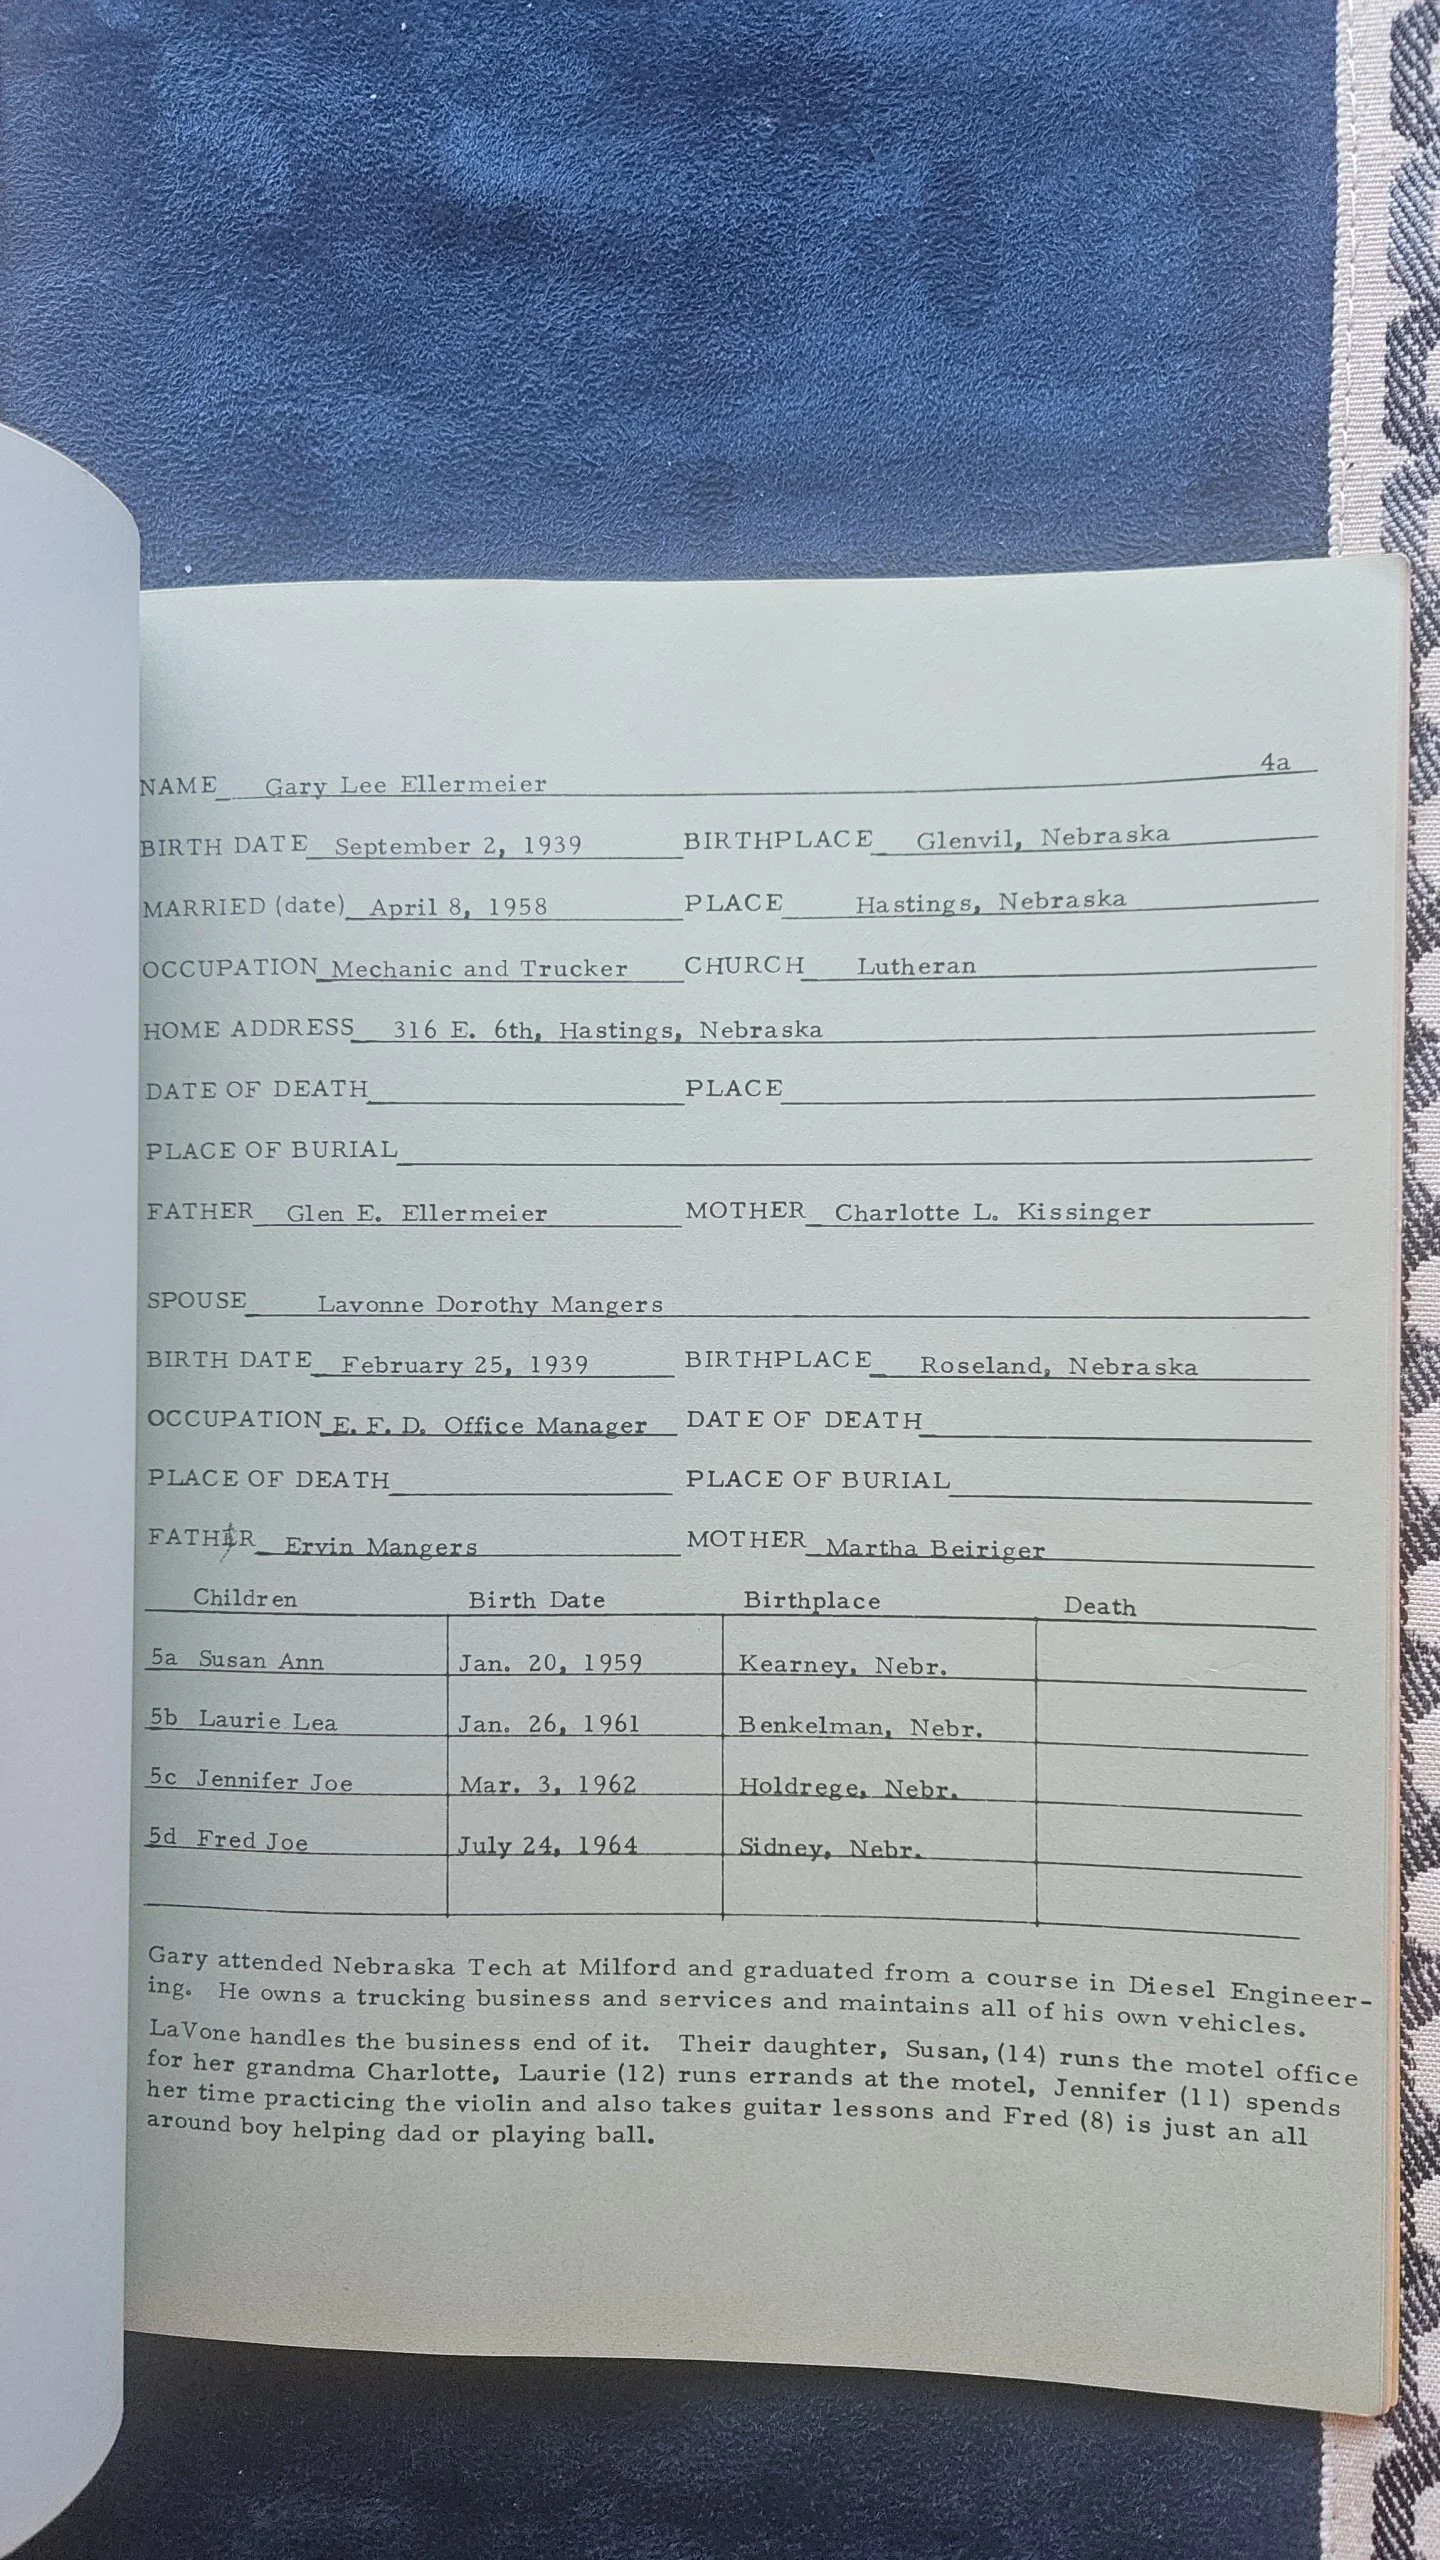 4a
NAME Gary Lee Ellermeier
BIRTH DATE September 2, 1939 BIRTHPLACE Glenvil, Nebraska
MARRIED (date) April 8, 1958 PLACE Hastings, Nebraska
OCCUPATION Mechanic and Trucker CHURCH Lutheran
HOME ADDRESS 316 E. 6th, Hastings, Nebraska
DATE OF DEATH PLACE
PLACE OF BURIAL
FATHER Glen E. Ellermeier MOTHER Charlotte L. Kissinger
SPOUSE Lavonne Dorothy Mangers
BIRTH DATE February 25, 1939 BIRTHPLACE Roseland, Nebraska
OCCUPATION E. F. D. Office Manager DATE OF DEATH
PLACE OF DEATH PLACE OF BURIAL
FATHER Ervin Mangers MOTHER Martha Beiriger
Children Birth Date Birthplace Death
5a Susan Ann Jan. 20, 1959 Kearney, Nebr.
5b Laurie Lea Jan. 26, 1961 Benkelman, Nebr.
5c Jennifer Joe Mar. 3, 1962 Holdrege, Nebr.
5d Fred Joe July 24, 1964 Sidney, Nebr.
Gary attended Nebraska Tech at Milford and graduated from a course in Diesel Engineer-
ing. He owns a trucking business and services and maintains all of his own vehicles.
LaVone handles the business end of it. Their daughter, Susan, (14) runs the motel office
for her grandma Charlotte, Laurie (12) runs errands at the motel, Jennifer (11) spends
her time practicing the violin and also takes guitar lessons and Fred (8) is just an all
around boy helping dad or playing ball.